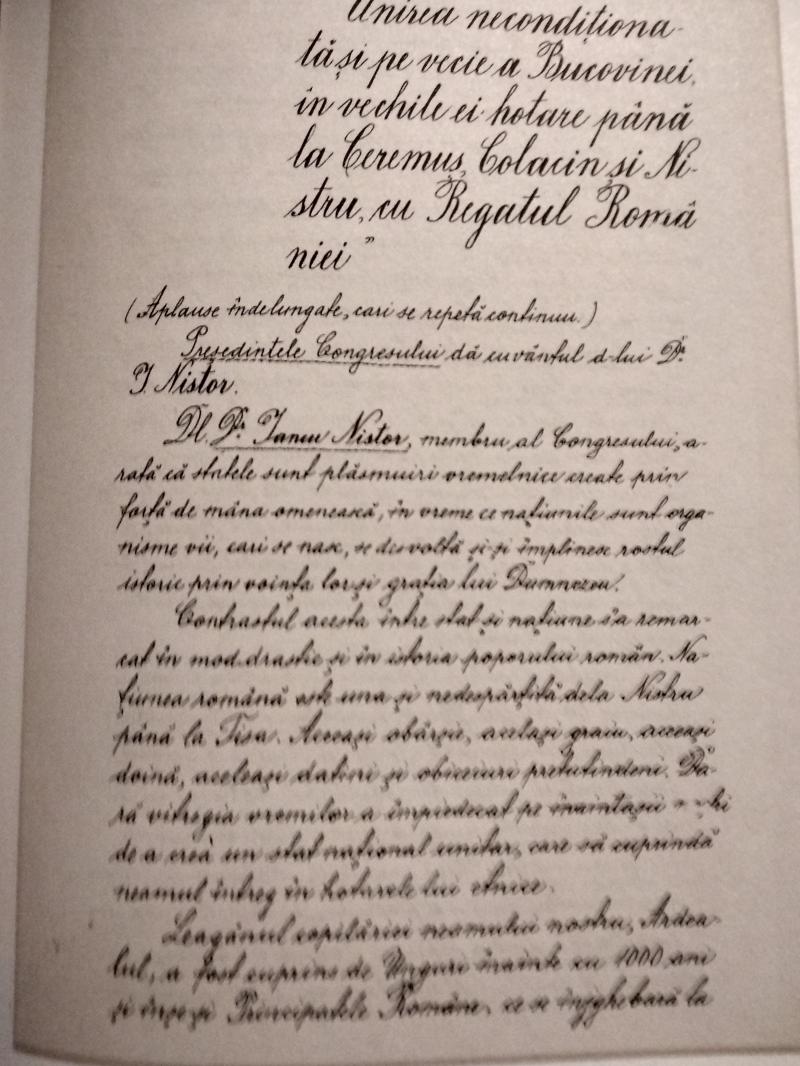 Unirea necondiționa-
tă și pe vecie a Bucovinei,
în vechile ei hotare până
la Ceremuș, Colacin și Ni-
stru, cu Regatul Româ
niei”
(Aplause îndelungate, cari se repetă continuu.)
Președintele Congresului dă cuvântul d-lui Dr.
I. Nistor.
Dl. Dr. Iancu Nistor, membru al Congresului, a-
rată că statele sunt plăsmuiri vremelnice create prin
forță de mâna omenească, în vreme ce națiunile sunt orga-
nisme vii, cari se nasc, se desvoltă și-și împlinesc rostul
istoric prin voința lor și grația lui Dumnezeu.
Contrastul acesta între stat și națiune s'a remar-
cat în mod drastic și în istoria poporului român. Na-
țiunea română este una și nedespărțită dela Nistru
până la Tisa. Aceeași obârșie, același graiu, aceeași
doină, aceleași datini și obiceiuri pretutindeni. Da-
ră vitregia vremilor a împiedecat pe înaintașii
de a creà un stat național unitar, care să cuprindă
neamul întreg în hotarele lui etnice.
Leagănul copilăriei neamului nostru, Ardea-
lul, a fost cuprins de Unguri înainte cu 1000 ani
și Principatele Române, ce se înjghebară la